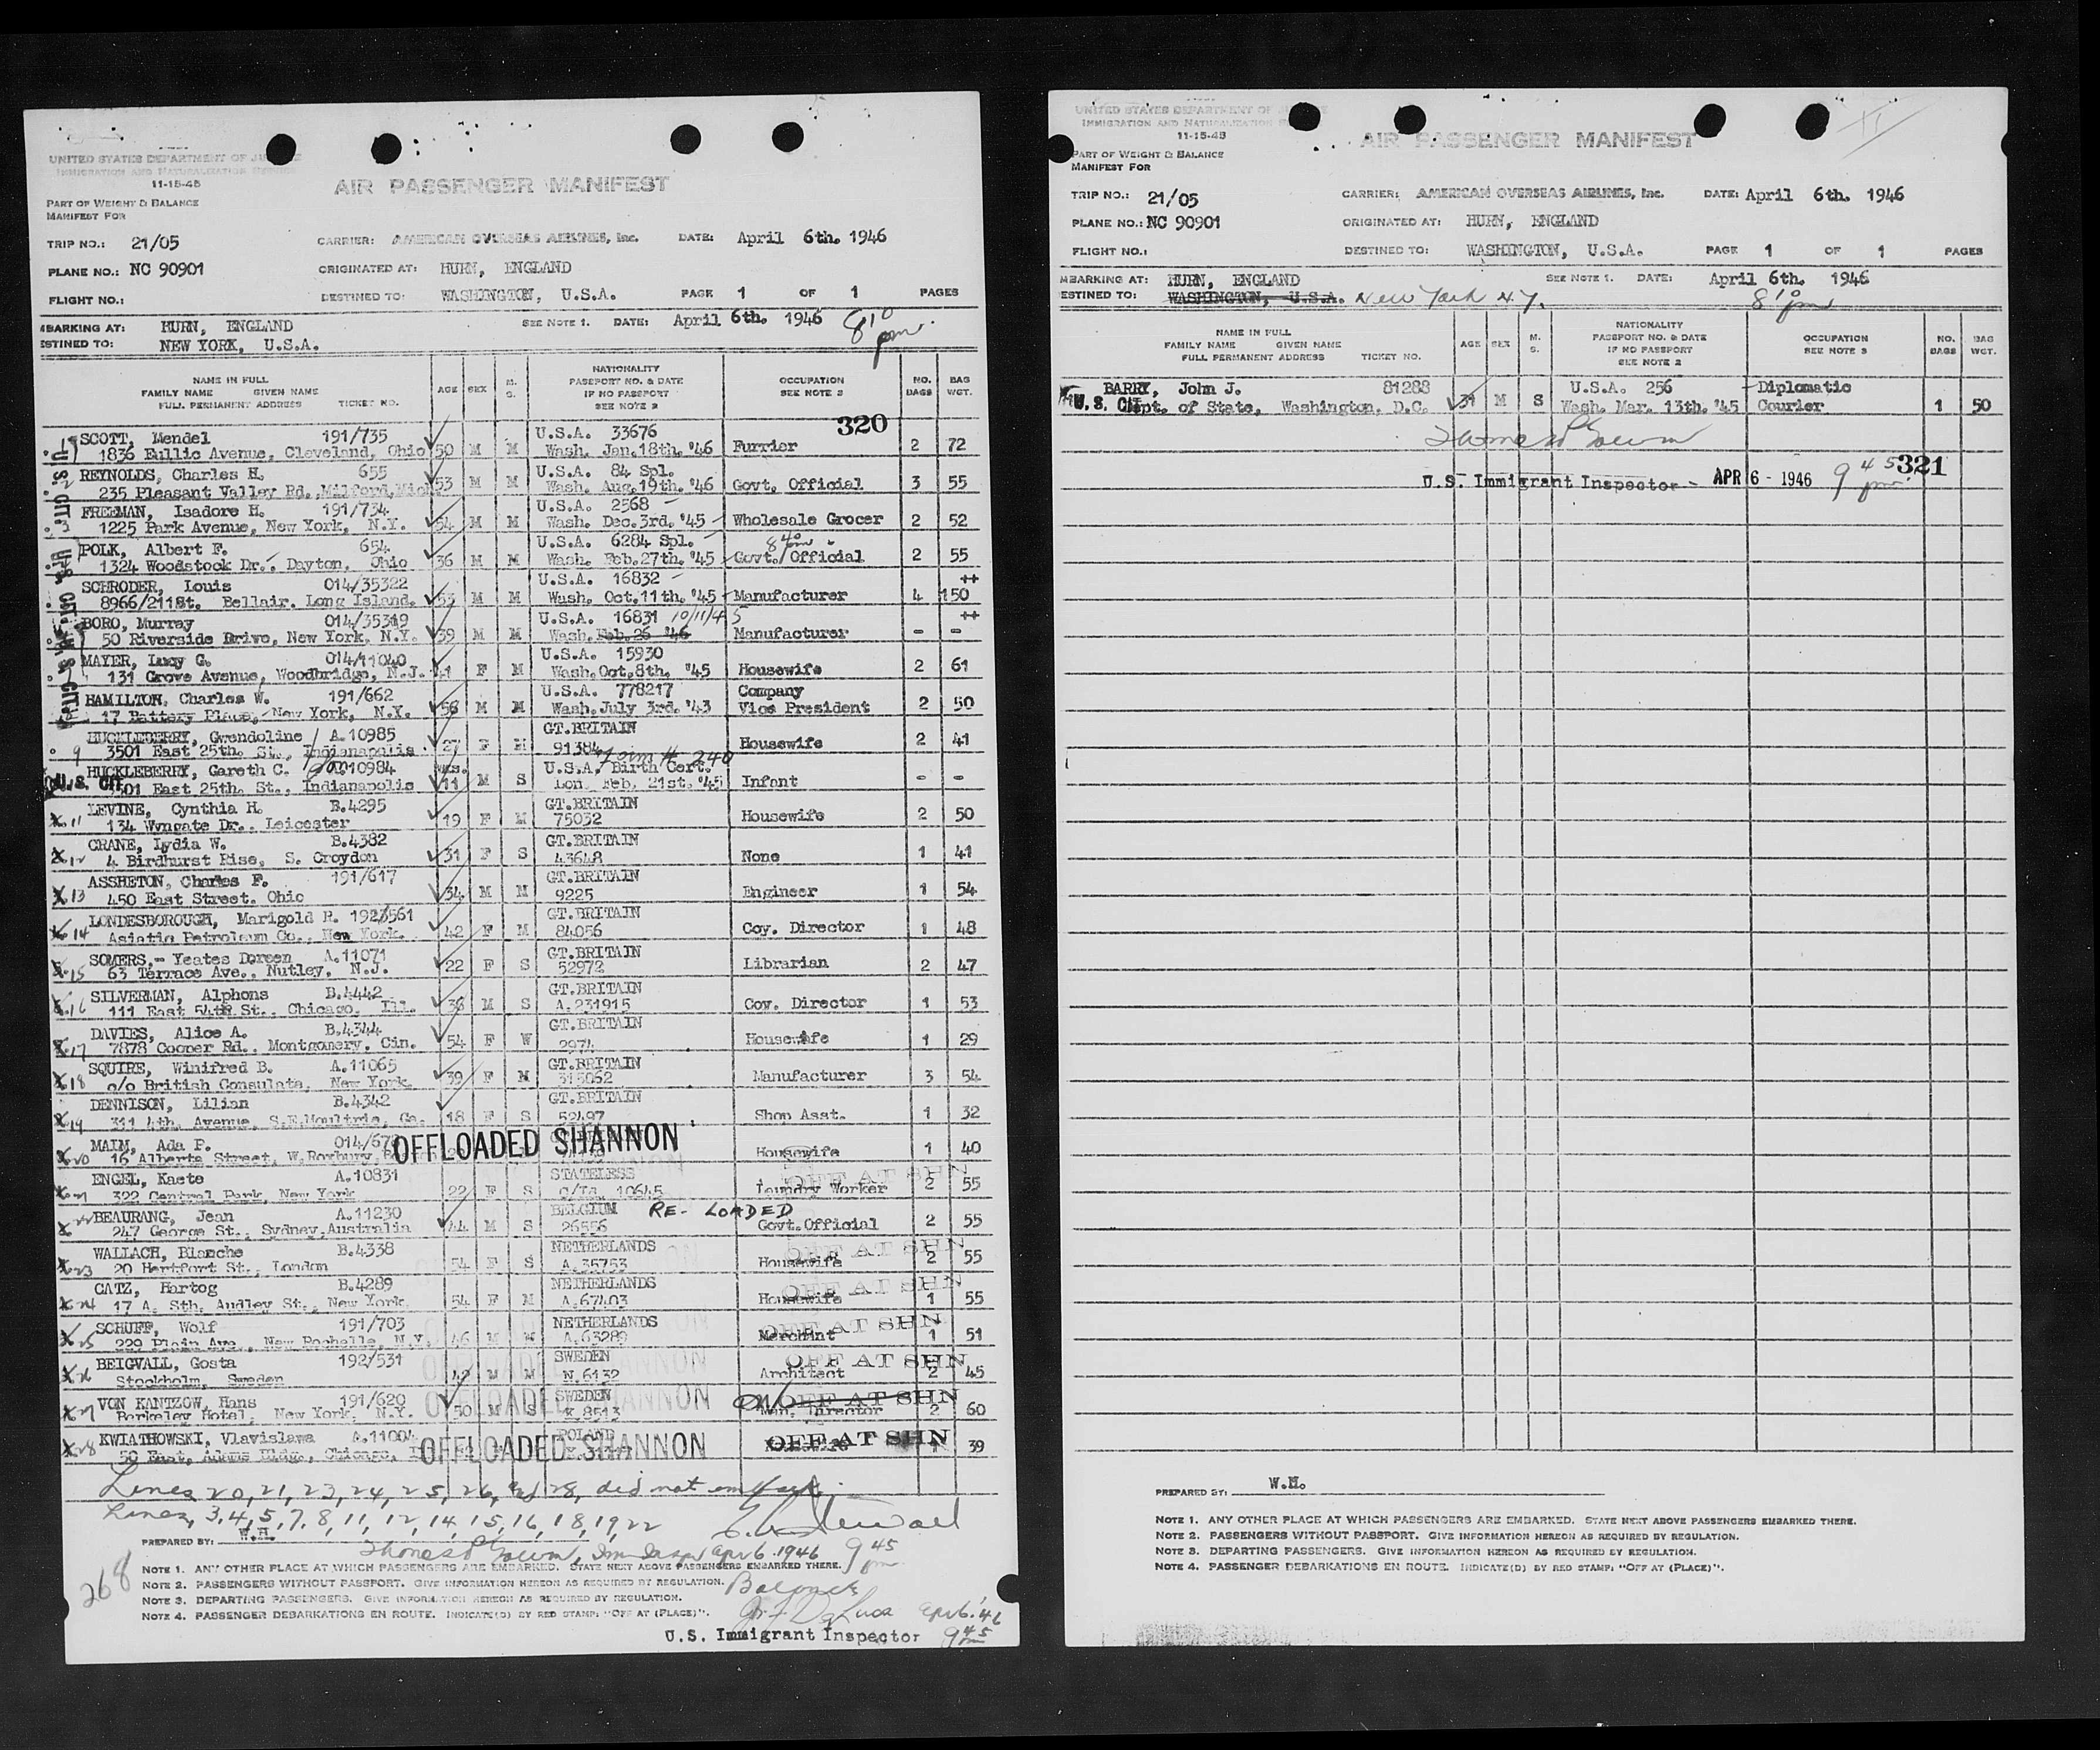 UNITED STATES DEPARTMENT OF
IMMIGRATION AND NATURALIZATION SERVICE
11-15-45
AIR PASSENGER MANIFEST
PART OF WEIGHT & BALANCE
MANIFEST FOR
TRIP NO.: 21/05 CARRIER: AMERICAN OVERSEAS AIRLINES, Inc. DATE: April 6th. 1946
PLANE NO.: NC 90901 ORIGINATED AT: HURN, ENGLAND
FLIGHT NO.: DESTINED TO: WASHINGTON, U.S.A. PAGE 1 OF 1 PAGES
MBARKING AT: HURN, ENGLAND SEE NOTE 1. DATE: April 6th. 1946 8 10 pm.
STINED TO: NEW YORK, U.S.A.
NAME IN FULL
FAMILY NAME GIVEN NAME
FULL PERMANENT ADDRESS TICKET NO.
AGE SEX M. S.
NATIONALITY
PASSPORT NO. & DATE
IF NO PASSPORT
SEE NOTE 2
OCCUPATION
SEE NOTE 3
NO. BAGS
BAG WGT.
320
SCOTT, Mendel 191/735 U.S.A. 33676
1836 Eullic Avenue, Cleveland, Ohio 50 M M Wash. Jan.18th. '46 Furrier 2 72
REYNOLDS, Charles H. 655 U.S.A. 84 Spl.
235 Pleasant Valley Rd., Milford, Mich 53 M M Wash. Aug.19th. '46 Govt. Official 3 55
FREEMAN, Isadore H. 191/734 U.S.A. 2568
1225 Park Avenue, New York, N.Y. 54 M M Wash. Dec.3rd. '45 Wholesale Grocer 2 52
POLK, Albert F. 654 U.S.A. 6284 Spl.
1324 Woodstock Dr., Dayton, Ohio 36 M M Wash. Feb.27th. '45 Govt. Official 2 55
SCHRODER, Louis 014/35322 U.S.A. 16832 ++
8966/211St. Bellair. Long Island. 53 M M Wash. Oct.11th. '45 Manufacturer 4 150
BORO, Murray 014/35319 U.S.A. 16831 10/11/45 ++
50 Riverside Drive, New York, N.Y. 39 M M Wash. Feb.26 '46 Manufacturer - -
MAYER, Lucy G. 014/11040 U.S.A. 15930
131 Grove Avenue, Woodbridge, N.J. 41 F M Wash.Oct.8th. '45 Housewife 2 61
HAMILTON, Charles W. 191/662 U.S.A. 778217 Company
17 Battery Place, New York, N.Y. 56 M M Wash.July 3rd. '43 Vice President 2 50
HUCKLEBERRY, Gwendoline A.10985 GT.BRITAIN
9 3501 East 25th. St., Indianapolis 27 F M 91384 Housewife 2 41
Form # 240
HUCKLEBERRY, Gareth C. A.10984 Mos. U.S.A. Birth Cert.
U.S. CIT. 3501 East 25th. St., Indianapolis 11 M S Lon. Feb. 21st. '45 Infant - -
LEVINE, Cynthia H. B.4295 GT.BRITAIN
11 134 Wyngate Dr., Leicester 19 F M 75032 Housewife 2 50
CRANE, Lydia W. B.4382 GT.BRITAIN
12 4 Birdhurst Rise, S. Croydon 31 F S 43648 None 1 41
ASSHETON, Charles F. 191/617 GT.BRITAIN
13 450 East Street. Ohio 34 M M 9225 Engineer 1 54
LONDESBOROUGH, Marigold R. 192/561 GT.BRITAIN
14 Asiatic Petroleum Co., New York. 42 F M 84056 Coy. Director 1 48
SOMERS,- Yeates Doreen A.11071 GT.BRITAIN
15 63 Terrace Ave., Nutley, N.J. 22 F S 52972 Librarian 2 47
SILVERMAN, Alphons B.4442 GT.BRITAIN
16 111 East 54th St., Chicago. Ill. 38 M S A.231915 Coy. Director 1 53
DAVIES, Alice A. B.4344 GT.BRITAIN
17 7878 Cooper Rd., Montgomery, Cin. 54 F W 2974 Housewife 1 29
SQUIRE, Winifred B. A.11065 GT.BRITAIN
18 c/o British Consulate, New York. 39 F M 315062 Manufacturer 3 54
DENNISON, Lilian B.4342 GT.BRITAIN
19 311 4th. Avenue, S.E.Moultrie, Ga. 18 F S 52497 Shop Asst. 1 32
MAIM, Ada P. 014/678 OFFLOADED SHANNON
20 16 Alberta Street, W.Roxbury, Housewife 1 40
ENGEL, Kaete A.10831 STATELESS OFF AT SHN
21 322 Central Park, New York 22 F S C/Id. 10645 Laundry Worker 2 55
BEAURANG, Jean A.11230 BELGIUM RE-LOADED
22 247 George St., Sydney.Australia 44 M S 26556 Govt.Official 2 55
WALLACH, Blanche B.4338 NETHERLANDS OFF AT SHN
23 20 Hertfort St., London 54 F S A.35753 Housewife 2 55
CATZ, Hartog B.4289 NETHERLANDS OFF AT SHN
24 17 A. Sth. Audley St., New York. 54 F M A.67403 Housewife 1 55
SCHUFF, Wolf 191/703 NETHERLANDS OFF AT SHN
25 229 Plain Ave., New Rochelle, N.Y. 46 M W A.63289 Merchant 1 51
BEIGVALL, Gosta 192/531 SWEDEN OFF AT SHN
26 Stockholm, Sweden 42 M M N.6132 Architect 2 45
VON KANTZOW, Hans 191/620 SWEDEN OFFLOADED SHANNON OFF AT SHN
27 Berkeley Hotel, New York, N.Y. 50 M S K.8513 Man. Director 2 60
KWIATHOWSKI, Vlavislawa A.11004 POLAND OFFLOADED SHANNON OFF AT SHN
28 50 East, Adams Bldg., Chicago, 39
Lines 20, 21, 23, 24, 25, 26, & 28, did not embark.
Lines, 3, 4, 5, 7, 8, 11, 12, 14, 15, 16, 18, 19, 22
PREPARED BY: W.H.
Apr 6 1946 9 45 pm
NOTE 1. ANY OTHER PLACE AT WHICH PASSENGERS ARE EMBARKED. STATE NEXT ABOVE PASSENGERS EMBARKED THERE.
NOTE 2. PASSENGERS WITHOUT PASSPORT. GIVE INFORMATION HEREON AS REQUIRED BY REGULATION.
NOTE 3. DEPARTING PASSENGERS. GIVE INFORMATION HEREON AS REQUIRED BY REGULATION.
NOTE 4. PASSENGER DEBARKATIONS EN ROUTE. INDICATE(D) BY RED STAMP: "OFF AT (PLACE)".
268
Balance
Apr 6 '46
U.S. Immigrant Inspector 9 45 pm
UNITED STATES DEPARTMENT OF
IMMIGRATION AND NATURALIZATION
11-15-45
AIR PASSENGER MANIFEST
PART OF WEIGHT & BALANCE
MANIFEST FOR
TRIP NO.: 21/05 CARRIER: AMERICAN OVERSEAS AIRLINES, Inc. DATE: April 6th. 1946
PLANE NO.: NC 90901 ORIGINATED AT: HURN, ENGLAND
FLIGHT NO.: DESTINED TO: WASHINGTON, U.S.A. PAGE 1 OF 1 PAGES
MBARKING AT: HURN, ENGLAND SEE NOTE 1. DATE: April 6th. 1946
ESTINED TO: WASHINGTON, U.S.A. New York N.Y. 8 10 pm
NAME IN FULL
FAMILY NAME GIVEN NAME
FULL PERMANENT ADDRESS TICKET NO.
AGE SEX M. S.
NATIONALITY
PASSPORT NO. & DATE
IF NO PASSPORT
SEE NOTE 2
OCCUPATION
SEE NOTE 3
NO. BAGS
BAG WGT.
BARRY, John J. 81288 U.S.A. 256 Diplomatic
U.S. CIT. Dept. of State, Washington, D.C. 31 M S Wash. Mar. 13th. '45 Courier 1 50
U.S. Immigrant Inspector - APR 6 - 1946 9 45 pm. 321
PREPARED BY: W.H.
NOTE 1. ANY OTHER PLACE AT WHICH PASSENGERS ARE EMBARKED. STATE NEXT ABOVE PASSENGERS EMBARKED THERE.
NOTE 2. PASSENGERS WITHOUT PASSPORT. GIVE INFORMATION HEREON AS REQUIRED BY REGULATION.
NOTE 3. DEPARTING PASSENGERS. GIVE INFORMATION HEREON AS REQUIRED BY REGULATION.
NOTE 4. PASSENGER DEBARKATIONS EN ROUTE. INDICATE(D) BY RED STAMP: "OFF AT (PLACE)".